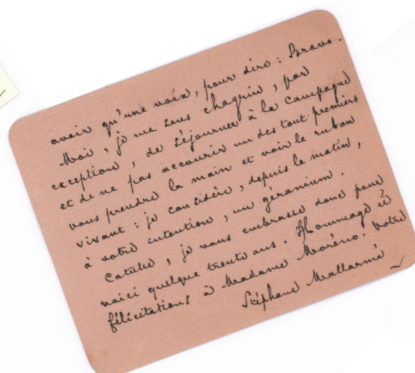 avoir qu'une voix, pour dire : Bravo.
Moi, je me sens chagrin, par
exception, de séjourner à la campagne
et de ne pas accourir un des tout premiers
vous prendre la main et voir le ruban
vivant : je considère, depuis le matin,
à votre intention, un géranium.
Catulle, je vous embrasse donc pour
voici quelque trente ans. Hommage et
félicitations à Madame Moréno. Votre
Stéphane Mallarmé